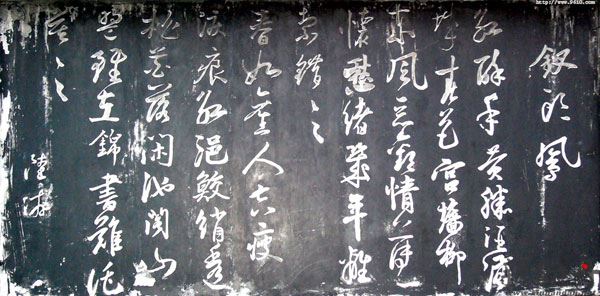 釵頭鳳
紅酥手黄縢酒滿
城春色宫牆柳
東風惡歡情薄一
懷愁緒幾年離
索錯〻〻
春如舊人空瘦
淚痕紅浥鮫綃透
桃花落閑池閣山
盟雖在錦書難托
莫〻〻
陸游
http://www.9610.com